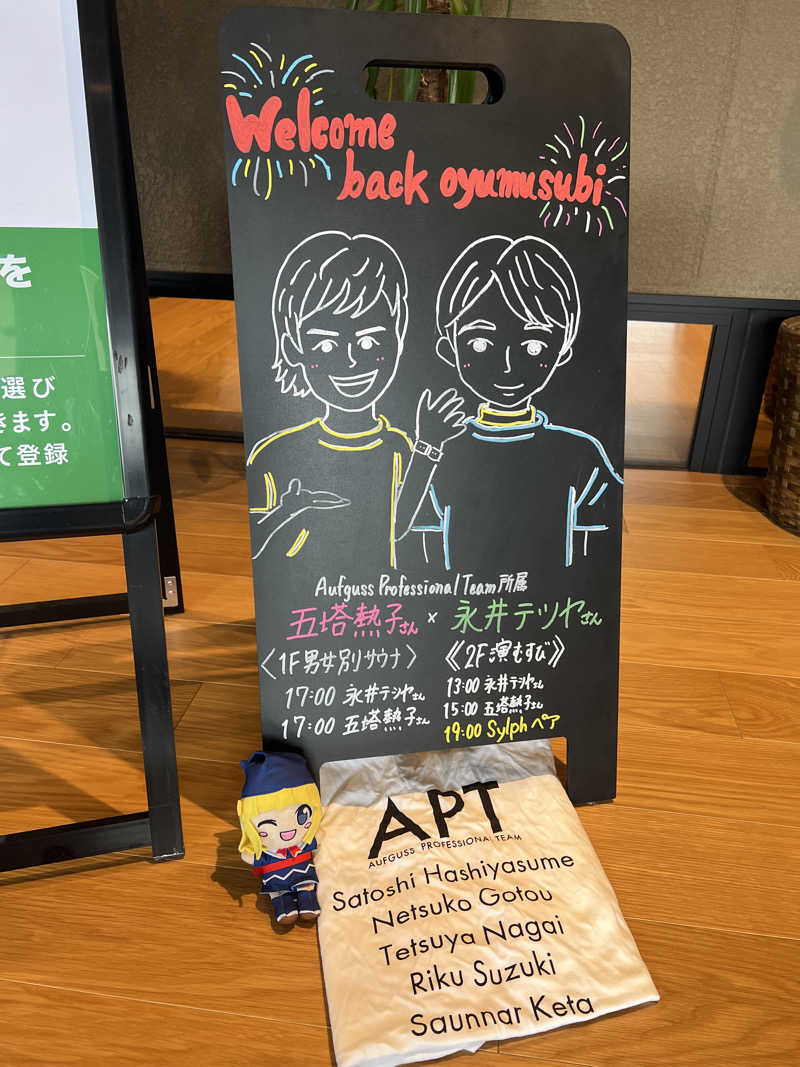 を
選び
きます。
て登録
Welcome
back oyumusubi
Aufguss Professional Team所属
五塔熱子さん × 永井テツヤさん
〈1F男女別サウナ〉
17:00 永井テツヤさん
17:00 五塔熱子さん
《2F演むすび》
13:00 永井テツヤさん
15:00 五塔熱子さん
19:00 Sylphペア
APT
AUFGUSS PROFESSIONAL TEAM
Satoshi Hashiyasume
Netsuko Gotou
Tetsuya Nagai
Riku Suzuki
Saunnar Keta